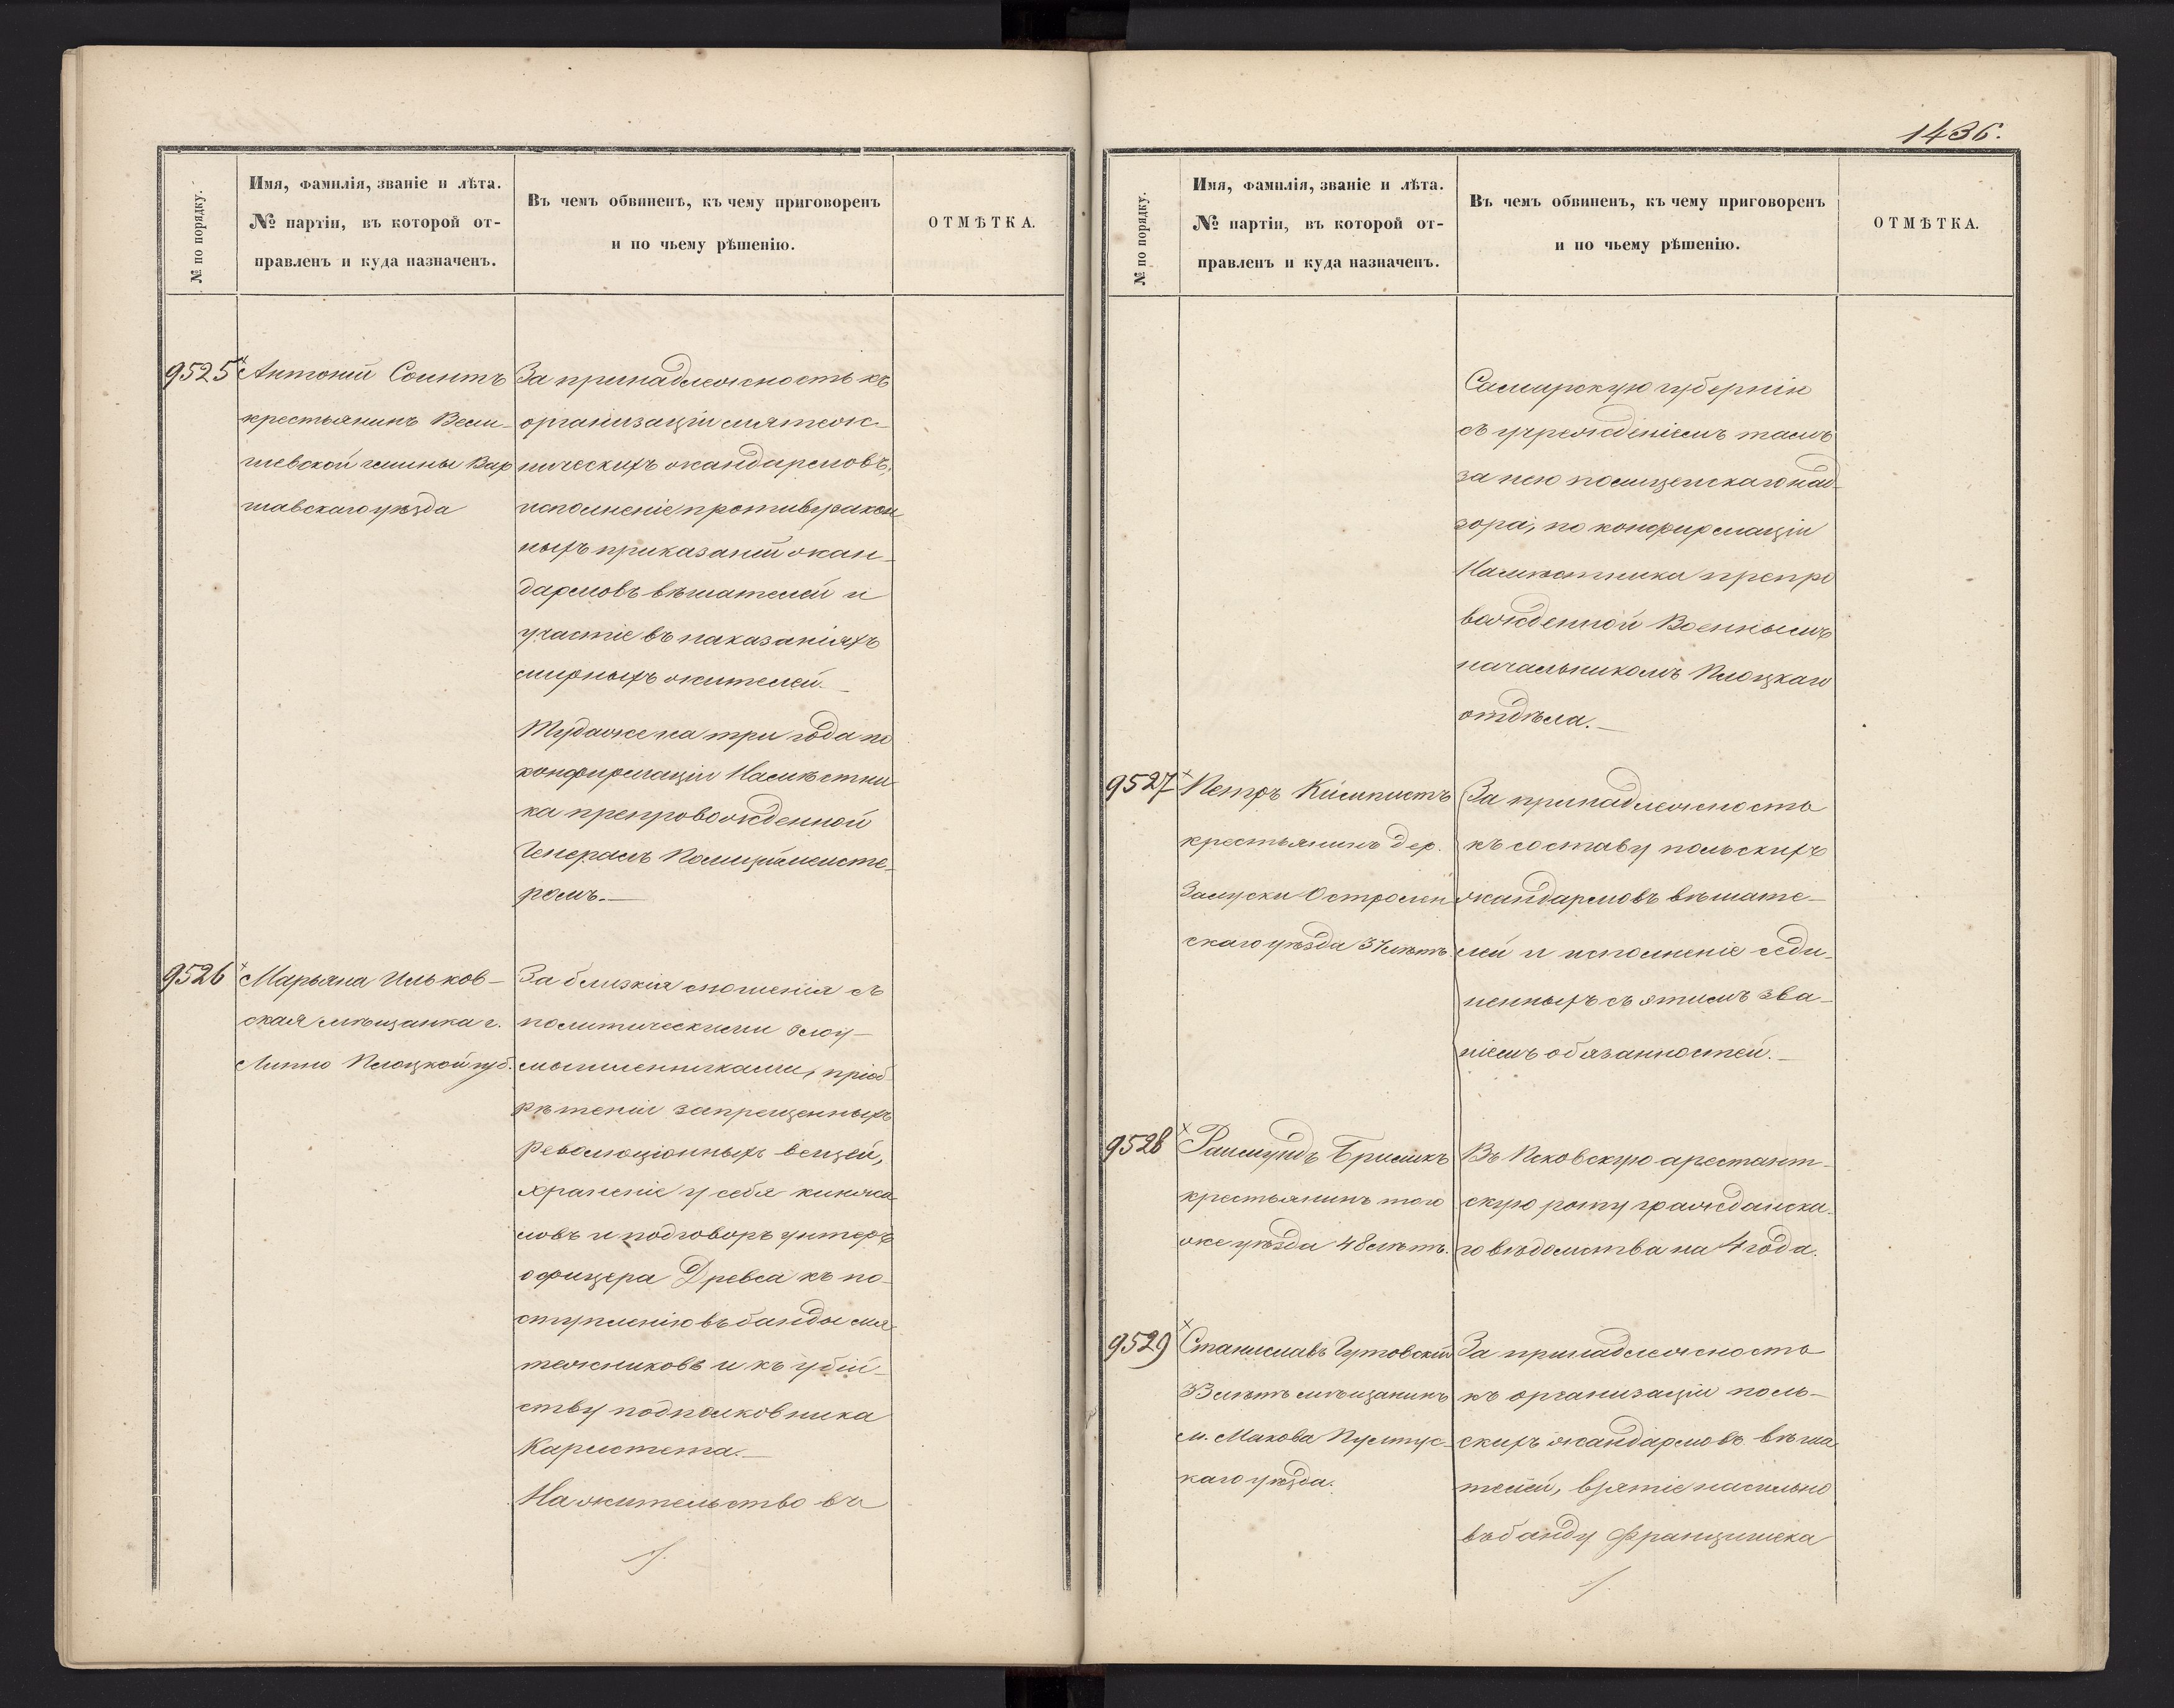 1436.
№ по порядку.
Имя, фамилія, званіе и лѣта.
№ партіи, въ которой от-
правленъ и куда назначенъ.
Въ чемъ обвиненъ, къ чему приговоренъ
и по чьему рѣшенію.
ОТМѢТКА.
9525
Антоній Соинтъ
крестьянинъ Вели-
шевской гмины Вар
шавскаго уѣзда
За принадлежность къ
организаціи мятеж-
ническихъ жандармовъ,
исполненіе противузакон
ныхъ приказаній жан-
дармовъ вѣшателей и
участіе въ наказаніяхъ
мирныхъ жителей.—
Туда же на три года по
конфирмаціи Намѣстни-
ка препровожденной
Генералъ Полицiймейсте-
ромъ.—
9526
Марьяна Ильков-
ская мѣщанка г.
Липно Плоцкой губ.
За близкія сношенія съ
политическими злоу-
мышленниками, пріоб-
рѣтеніи запрещенныхъ
революціонныхъ вещей,
храненіе у себя кинжа
ловъ и подговоръ унтеръ
офицера Древса къ по-
ступленію въ банды мя-
тежниковъ и къ убій-
ству подполковника
Кармстета.—
На жительство въ
№ по порядку.
Имя, фамилія, званіе и лѣта.
№ партіи, въ которой от-
правленъ и куда назначенъ.
Въ чемъ обвиненъ, къ чему приговоренъ
и по чьему рѣшенію.
ОТМѢТКА.
Самарскую губернію
съ учрежденіемъ тамъ
за нею полицейскаго над-
зора, по конфирмаціи
Намѣстника препро
вожденной Военнымъ
начальникомъ Плоцкаго
отдѣла.—
9527
Петръ
крестьянинъ дер.
Залуски Остролен
скаго уѣзда 37 лѣтъ.
За принадлежность
къ составу польскихъ
жандармовъ вѣшате-
лей и исполненіе соеди-
ненныхъ съ этимъ зва-
ніемъ обязанностей.—
9528
Раймундъ
крестьянинъ того
же уѣзда 48 лѣтъ.
Въ Псковскую арестант-
скую роту гражданска-
го вѣдомства на 4 года.
9529
Станиславъ Гутовскій
лѣтъ мѣщанинъ
м. Макова Пултус-
каго уѣзда.
За принадлежность
къ организаціи поль-
скихъ жандармовъ вѣша
телей, взятіе насильно
въ банду Францишека